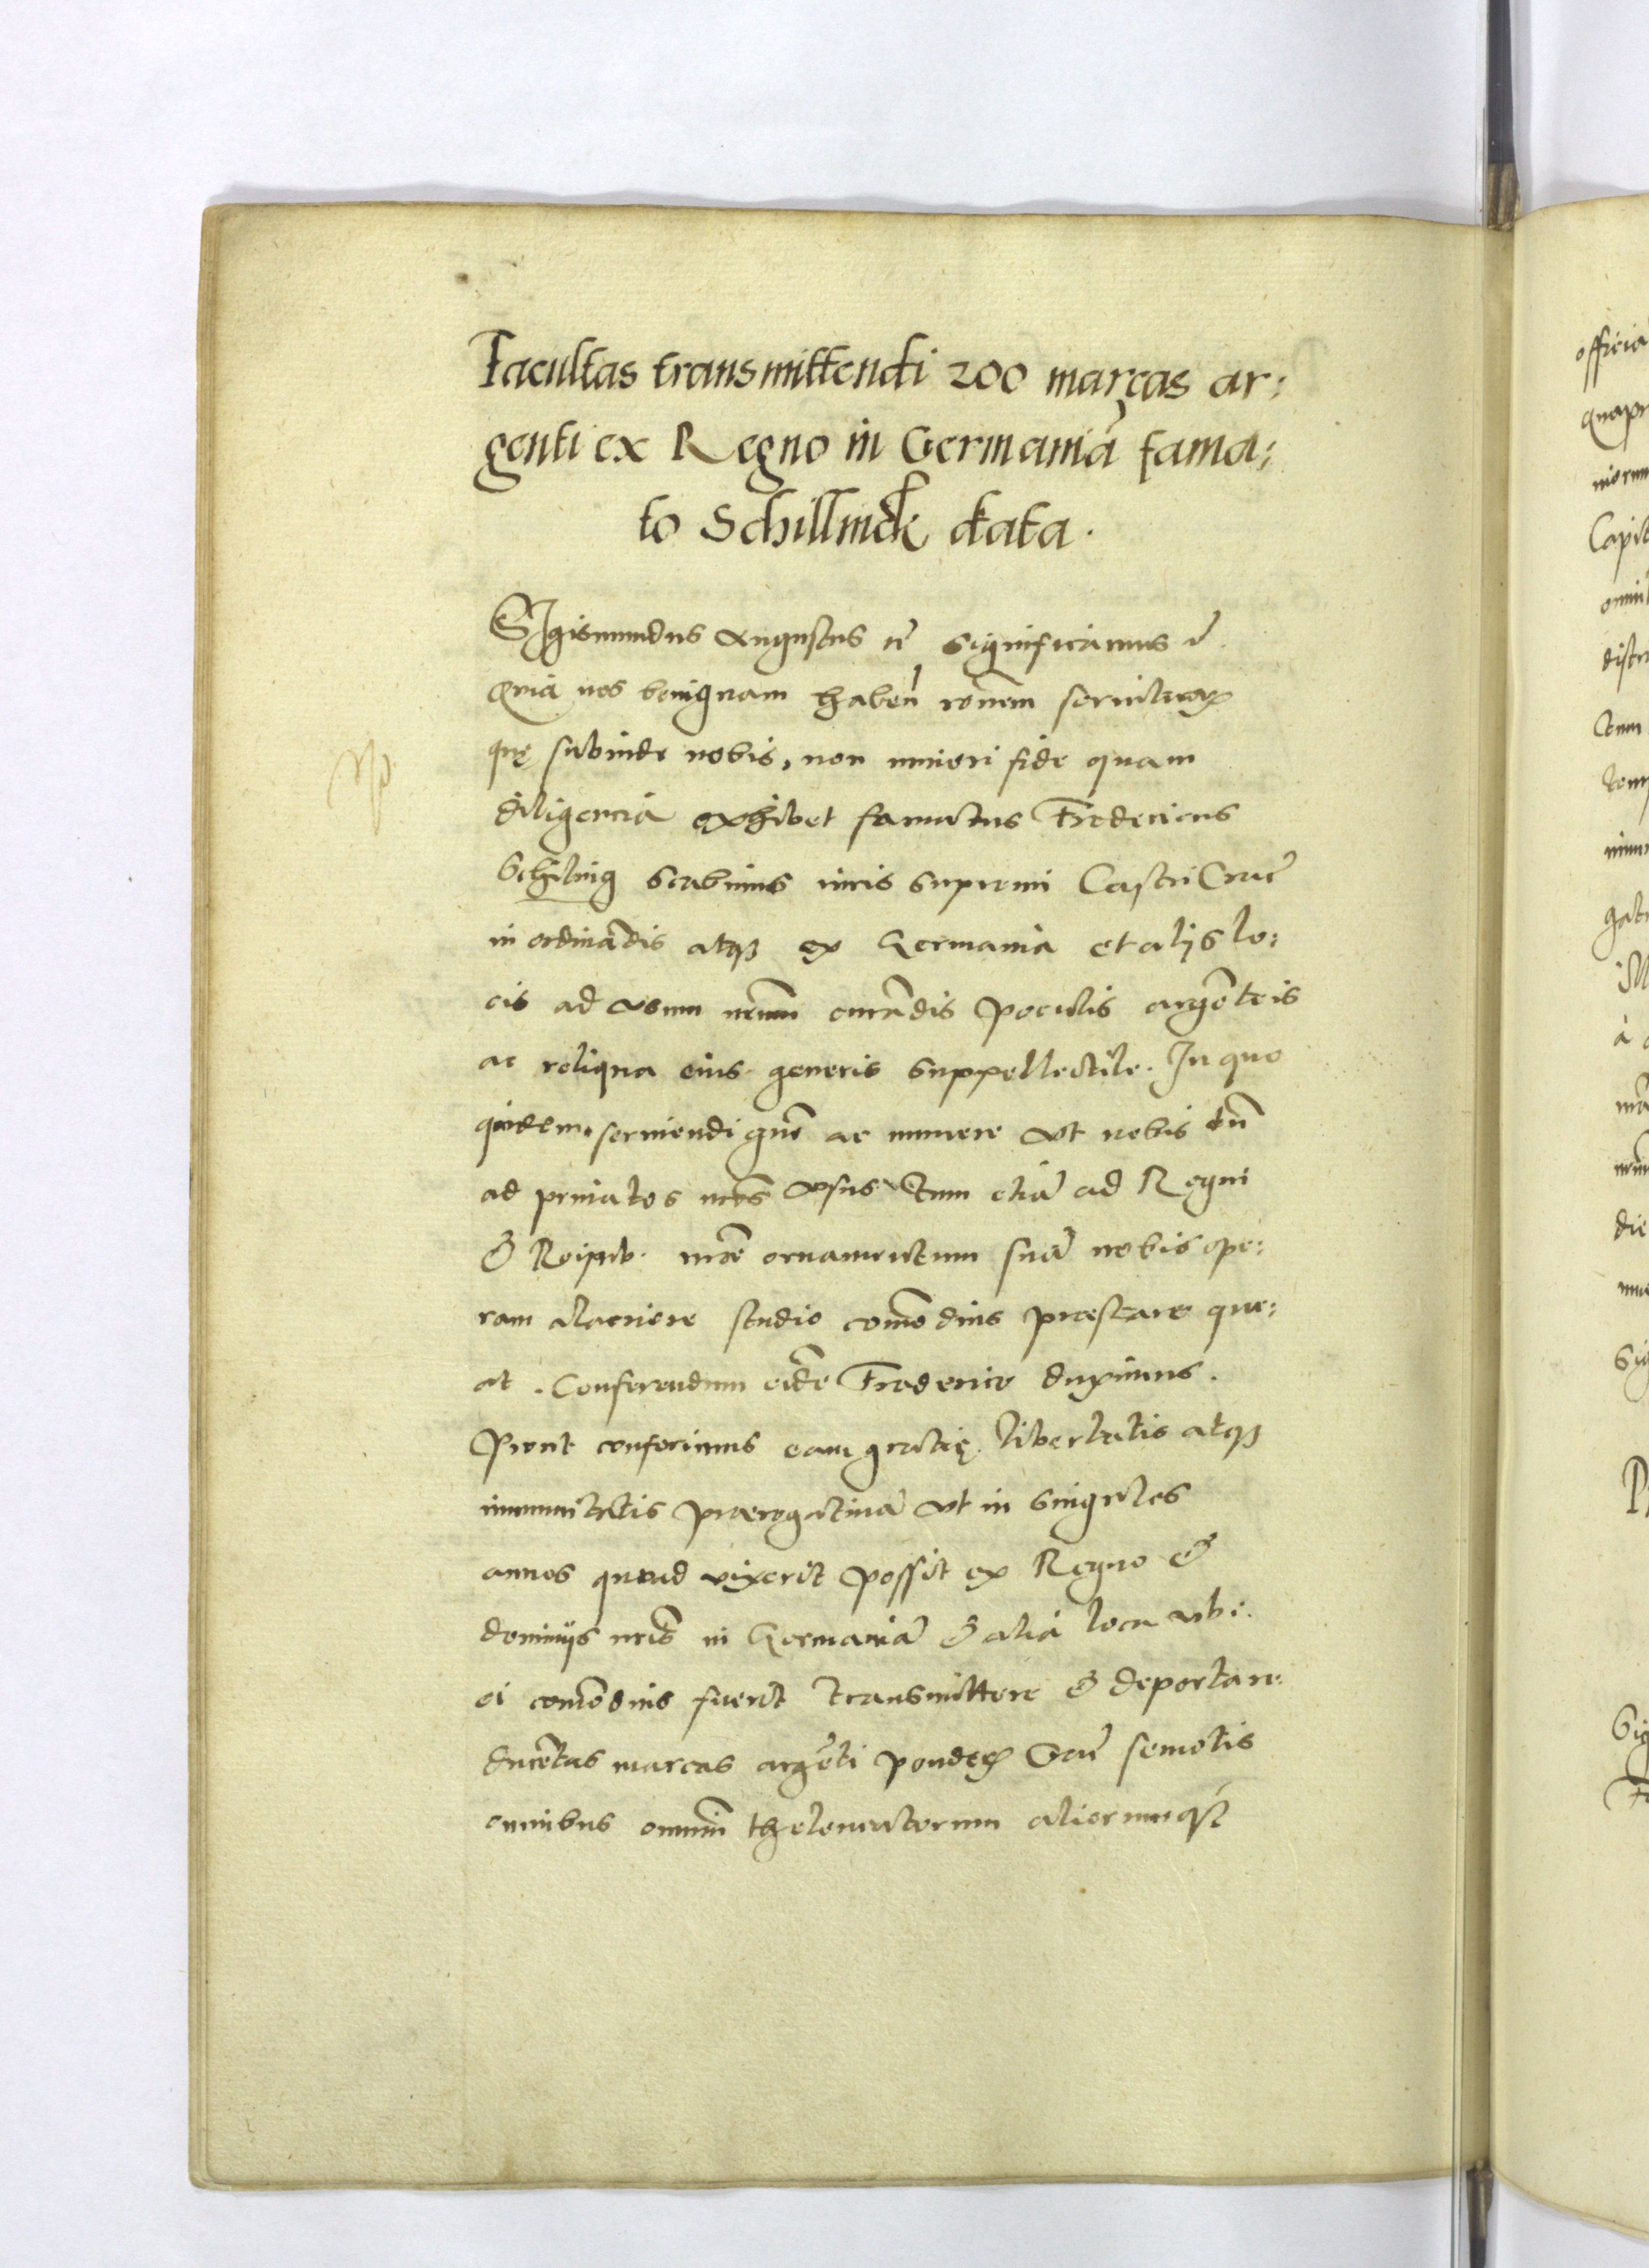 Facultas transmittendi 200 marcas ar:
genti ex Regno in Germaniā fama:
to Schillinck data.
SIgismundus Augustus ꝛc̄ significamus ꝛc̄.
Quia nos benignam haben̄ rōnem seruitiorꝫ
quę subinde nobis, non minori fide quam
diligencia exhibet famatus Fredericus
Schiling scabinus iuris supremi Castri Crac̄
in ordinādis atqꝫ ex Germania et alijs lo:
cis ad vsum nr̄um curādis poculis argēteis
ac reliqua eius generis suppellectile. In quo
quidem seruiendi gn̄e ac munere vt nobis tū
ad priuatos nr̄os vsus tum etiā ad Regni
& Reipub. nr̄ae ornamentum suā nobis ope:
ram alacriore studio com̄odius praestare que:
at. Conferendum eidē Frederico duximus.
Prout conferimus eam gratię, libertatis atqꝫ
immunitatis praerogatiuā vt in singulos
annos quoad vixerit possit ex Regno &
dominijs nr̄is in Germaniā & alia loca vbi
ei com̄odius fuerit transmittere & deportare
ducētas marcas argēti ponderꝫ Crac̄ semotis
omnibus omniū theloneatorum aliorumqꝫ
officia
Capit